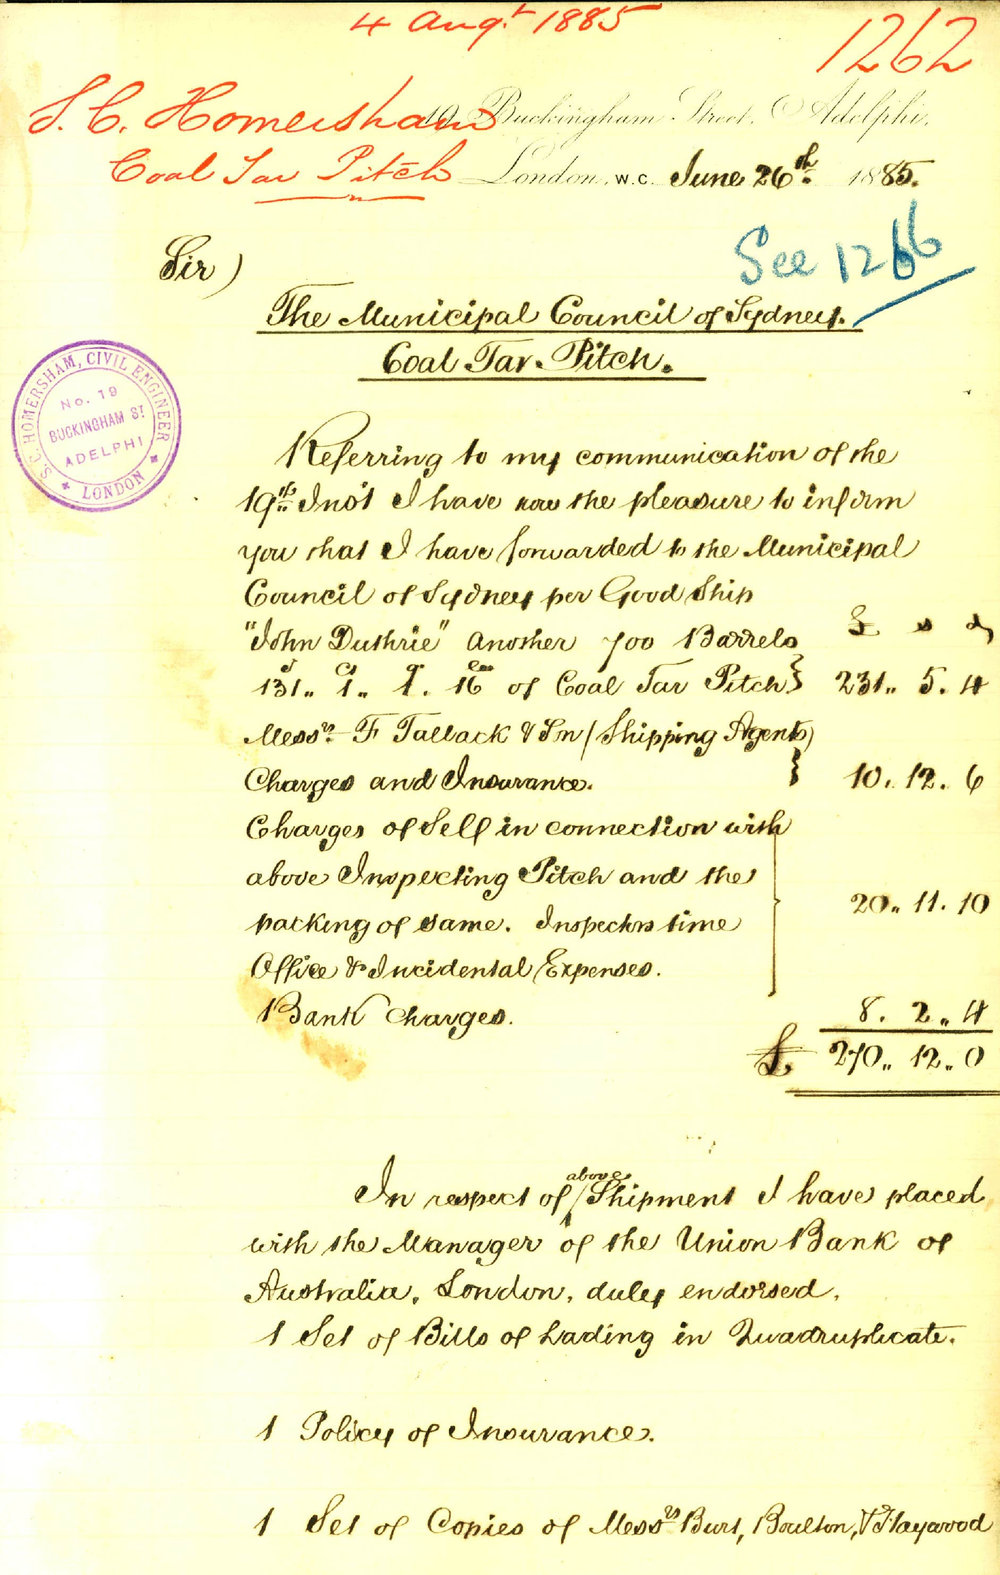 4 Augt 1885
1262
S. C. Homersham
Coal Tar Pitch
19, Buckingham Street, Adelphi,
London, W.C. June 26th 1885.
See 1266
Sir)
The Municipal Council of Sydney.
Coal Tar Pitch.
S. C. HOMERSHAM, CIVIL ENGINEER
No. 19
BUCKINGHAM ST
ADELPHI
LONDON
Referring to my communication of the
19th Inst I have now the pleasure to inform
you that I have forwarded to the Municipal
Council of Sydney per Good Ship
"John Duthie" another 700 Barrels £ s d
T C q lbs
131" 1" 1. 16 of Coal Tar Pitch} 231" 5. 4
Messrs F Tallack & Sn (Shipping Agents)
Charges and Insurance. } 10. 12. 6
Charges of Self in connection with
above Inspecting Pitch and the
packing of same. Inspectors time 20" 11. 10
Office & Incidental Expenses.
Bank Charges. 8. 2" 4
£ 270" 12" 0
In respect of above Shipment I have placed
with the Manager of the Union Bank of
Australia, London, duly endorsed.
1 Set of Bills of Lading in Quadruplicate.
1 Policy of Insurance.
1 Set of Copies of Messrs Burt, Boulton, & Haywood